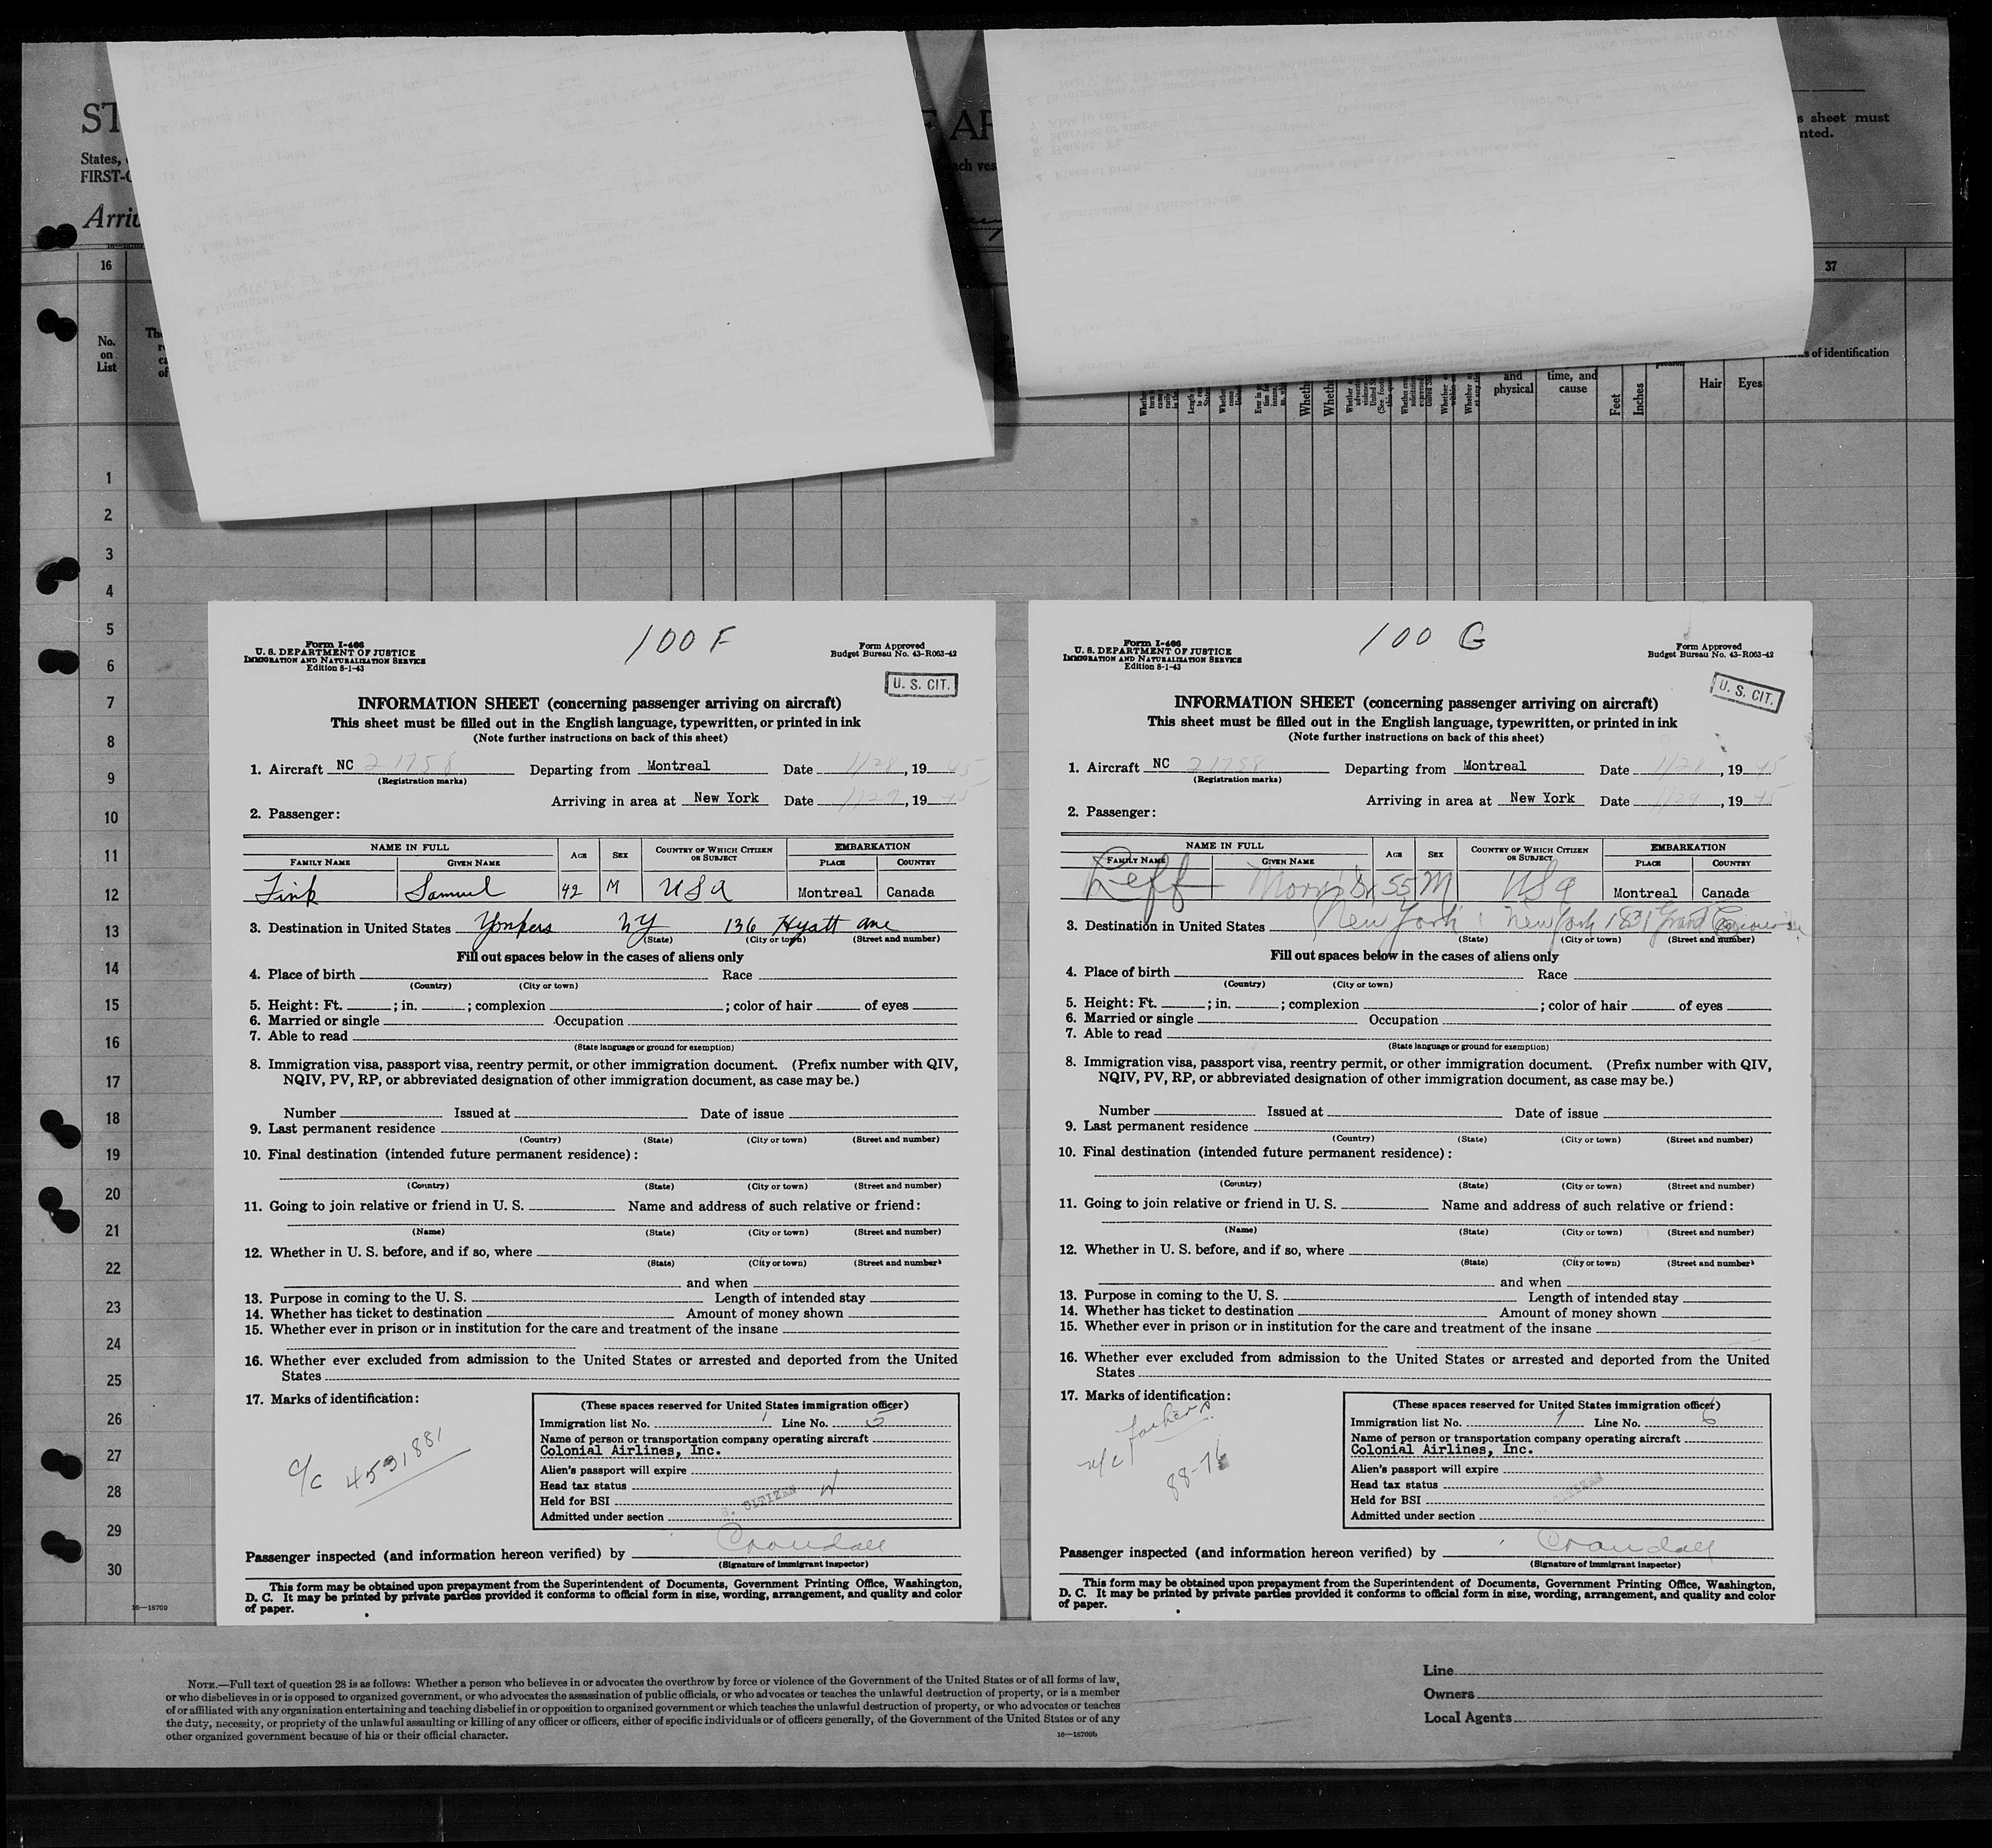 ST
F AR
s sheet must
nted.
States,
FIRST-C
ach ves
Arriv
16
37
No.
on
List
s of identification
and
physical
time, and
cause
Feet
Inches
Hair
Eyes
1
2
3
4
5
6
7
8
9
10
11
12
13
14
15
16
17
18
19
20
21
22
23
24
25
26
27
28
29
30
16—18709
100 F
Form I-466
U. S. DEPARTMENT OF JUSTICE
IMMIGRATION AND NATURALIZATION SERVICE
Edition 8-1-43
Form Approved
Budget Bureau No. 43-R063-42
U. S. CIT.
INFORMATION SHEET (concerning passenger arriving on aircraft)
This sheet must be filled out in the English language, typewritten, or printed in ink
(Note further instructions on back of this sheet)
1. Aircraft NC 21758 Departing from Montreal Date 1/28, 1945
(Registration marks)
Arriving in area at New York Date 1/29, 1945
2. Passenger:
NAME IN FULL AGE SEX COUNTRY OF WHICH CITIZEN OR SUBJECT EMBARKATION
FAMILY NAME GIVEN NAME PLACE COUNTRY
Fink Samuel 42 M USA Montreal Canada
3. Destination in United States Yonkers NY 136 Hyatt ave
(State) (City or town) (Street and number)
Fill out spaces below in the cases of aliens only
4. Place of birth Race
(Country) (City or town)
5. Height: Ft. ; in. ; complexion ; color of hair of eyes
6. Married or single Occupation
7. Able to read
(State language or ground for exemption)
8. Immigration visa, passport visa, reentry permit, or other immigration document. (Prefix number with QIV,
NQIV, PV, RP, or abbreviated designation of other immigration document, as case may be.)
Number Issued at Date of issue
9. Last permanent residence
(Country) (State) (City or town) (Street and number)
10. Final destination (intended future permanent residence):
(Country) (State) (City or town) (Street and number)
11. Going to join relative or friend in U. S. Name and address of such relative or friend:
(Name) (State) (City or town) (Street and number)
12. Whether in U. S. before, and if so, where
(State) (City or town) (Street and number)
and when
13. Purpose in coming to the U. S. Length of intended stay
14. Whether has ticket to destination Amount of money shown
15. Whether ever in prison or in institution for the care and treatment of the insane
16. Whether ever excluded from admission to the United States or arrested and deported from the United
States
17. Marks of identification:
c/c 4531881
(These spaces reserved for United States immigration officer)
Immigration list No. 1 Line No. 5
Name of person or transportation company operating aircraft
Colonial Airlines, Inc.
Alien's passport will expire
Head tax status
Held for BSI
S. CITIZEN
Admitted under section
Passenger inspected (and information hereon verified) by Crandall
(Signature of immigrant inspector)
This form may be obtained upon prepayment from the Superintendent of Documents, Government Printing Office, Washington,
D. C. It may be printed by private parties provided it conforms to official form in size, wording, arrangement, and quality and color
of paper.
100 G
Form I-466
U. S. DEPARTMENT OF JUSTICE
IMMIGRATION AND NATURALIZATION SERVICE
Edition 8-1-43
Form Approved
Budget Bureau No. 43-R063-42
U. S. CIT.
INFORMATION SHEET (concerning passenger arriving on aircraft)
This sheet must be filled out in the English language, typewritten, or printed in ink
(Note further instructions on back of this sheet)
1. Aircraft NC 21758 Departing from Montreal Date 1/28, 1945
(Registration marks)
Arriving in area at New York Date 1/29, 1945
2. Passenger:
NAME IN FULL AGE SEX COUNTRY OF WHICH CITIZEN OR SUBJECT EMBARKATION
FAMILY NAME GIVEN NAME PLACE COUNTRY
Leff Morris Dr 55 M USA Montreal Canada
3. Destination in United States New York New York 1831 Grand
(State) (City or town) (Street and number)
Fill out spaces below in the cases of aliens only
4. Place of birth Race
(Country) (City or town)
5. Height: Ft. ; in. ; complexion ; color of hair of eyes
6. Married or single Occupation
7. Able to read
(State language or ground for exemption)
8. Immigration visa, passport visa, reentry permit, or other immigration document. (Prefix number with QIV,
NQIV, PV, RP, or abbreviated designation of other immigration document, as case may be.)
Number Issued at Date of issue
9. Last permanent residence
(Country) (State) (City or town) (Street and number)
10. Final destination (intended future permanent residence):
(Country) (State) (City or town) (Street and number)
11. Going to join relative or friend in U. S. Name and address of such relative or friend:
(Name) (State) (City or town) (Street and number)
12. Whether in U. S. before, and if so, where
(State) (City or town) (Street and number)
and when
13. Purpose in coming to the U. S. Length of intended stay
14. Whether has ticket to destination Amount of money shown
15. Whether ever in prison or in institution for the care and treatment of the insane
16. Whether ever excluded from admission to the United States or arrested and deported from the United
States
17. Marks of identification:
n/c
88-76
(These spaces reserved for United States immigration officer)
Immigration list No. 1 Line No. 6
Name of person or transportation company operating aircraft
Colonial Airlines, Inc.
Alien's passport will expire
Head tax status
Held for BSI
CITIZEN
Admitted under section
Passenger inspected (and information hereon verified) by Crandall
(Signature of immigrant inspector)
This form may be obtained upon prepayment from the Superintendent of Documents, Government Printing Office, Washington,
D. C. It may be printed by private parties provided it conforms to official form in size, wording, arrangement, and quality and color
of paper.
NOTE.—Full text of question 28 is as follows: Whether a person who believes in or advocates the overthrow by force or violence of the Government of the United States or of all forms of law,
or who disbelieves in or is opposed to organized government, or who advocates the assassination of public officials, or who advocates or teaches the unlawful destruction of property, or is a member
of or affiliated with any organization entertaining and teaching disbelief in or opposition to organized government or which teaches the unlawful destruction of property, or who advocates or teaches
the duty, necessity, or propriety of the unlawful assaulting or killing of any officer or officers, either of specific individuals or of officers generally, of the Government of the United States or of any
other organized government because of his or their official character.
16—18709b
Line
Owners
Local Agents